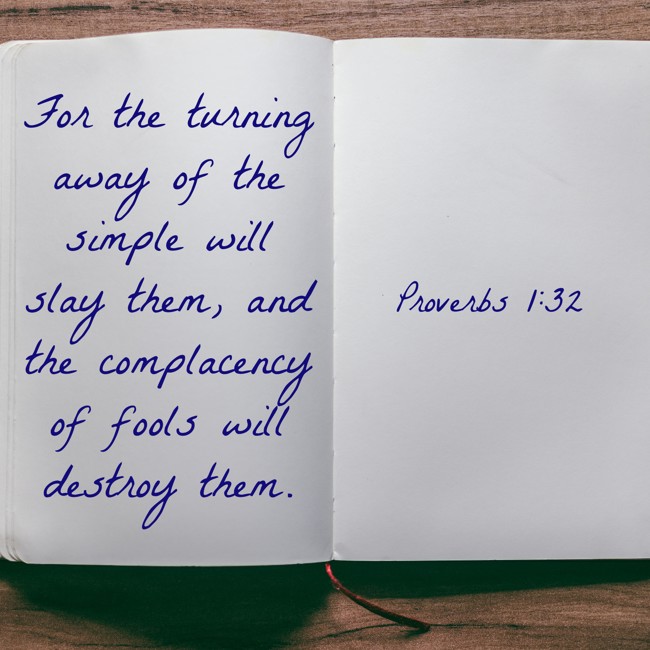 For the turning
away of the
simple will
slay them, and
the complacency
of fools will
destroy them.
Proverbs 1:32